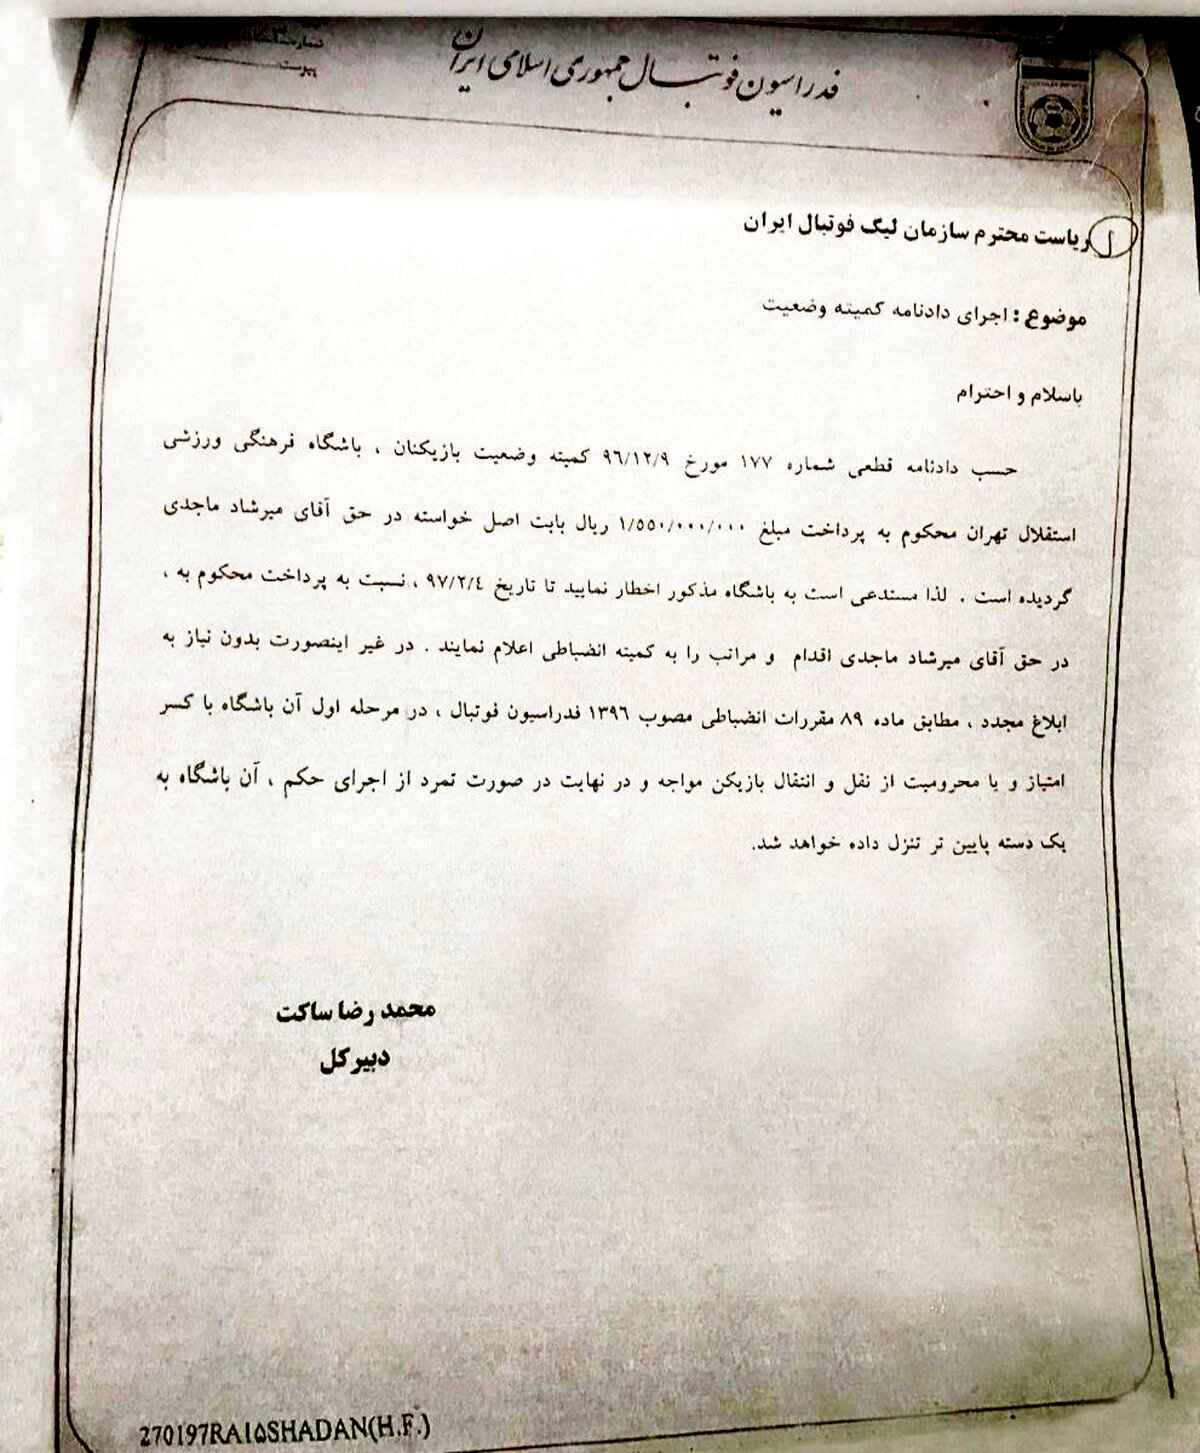 فدراسیون فوتبال جمهوری اسلامی ایران
شماره
پیوست
ریاست محترم سازمان لیگ فوتبال ایران
موضوع : اجرای دادنامه کمیته وضعیت
باسلام و احترام
حسب دادنامه قطعی شماره ۱۷۷ مورخ ۹۶/۱۲/۹ کمیته وضعیت بازیکنان ، باشگاه فرهنگی ورزشی
استقلال تهران محکوم به پرداخت مبلغ ۱/۵۵۰/۰۰۰/۰۰۰ ریال بابت اصل خواسته در حق آقای میرشاد ماجدی
گردیده است . لذا مستدعی است به باشگاه مذکور اخطار نمایید تا تاریخ ۹۷/۲/٤ ، نسبت به پرداخت محکوم به ،
در حق آقای میرشاد ماجدی اقدام و مراتب را به کمیته انضباطی اعلام نمایند . در غیر اینصورت بدون نیاز به
ابلاغ مجدد ، مطابق ماده ۸۹ مقررات انضباطی مصوب ۱۳۹٦ فدراسیون فوتبال ، در مرحله اول آن باشگاه با کسر
امتیاز و یا محرومیت از نقل و انتقال بازیکن مواجه و در نهایت در صورت تمرد از اجرای حکم ، آن باشگاه به
یک دسته پایین تر تنزل داده خواهد شد.
محمد رضا ساکت
دبیر کل
270197RA۱۵SHADAN(H.F.)